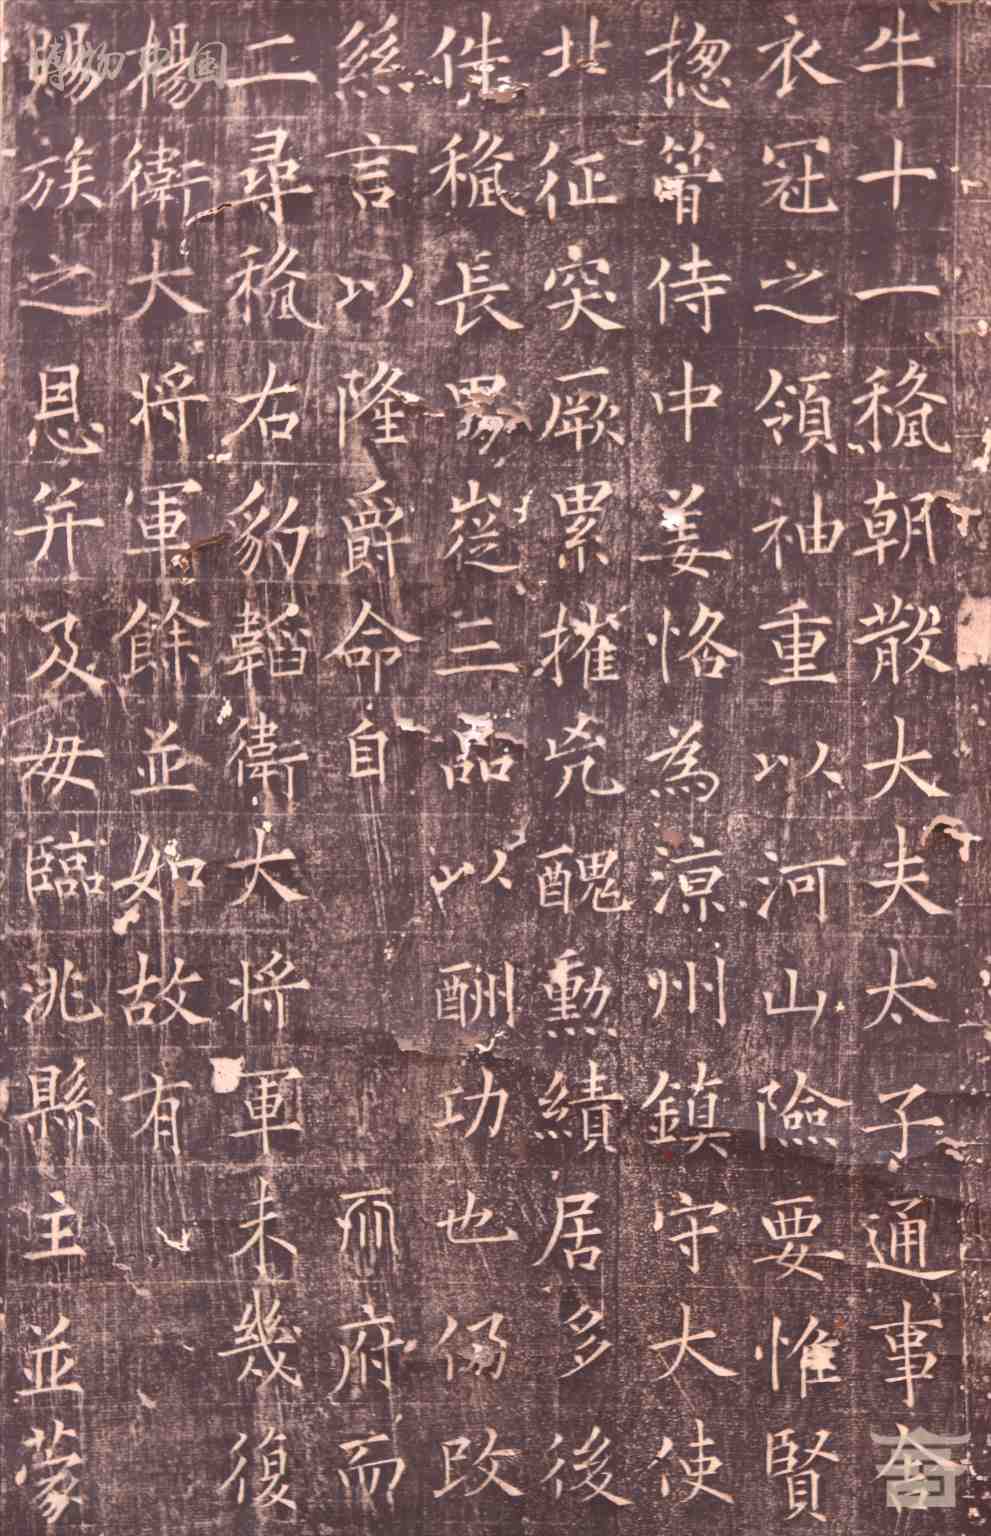 牛十一𥠢朝散大夫太子通事舍
衣冠之領袖重以河山險要惟賢
揔管侍中姜恪為涼州鎮守大使
北征突厥累摧兇醜勳績居多後
件𥠢長男嵸三品以酬功也仍改
絲言以隆爵命自𠀑府而
二尋𥠢右豹韜衛大將軍未幾復
楊衛大將軍餘並如故有
賜族之恩并及母臨洮縣主並蒙
博物中国